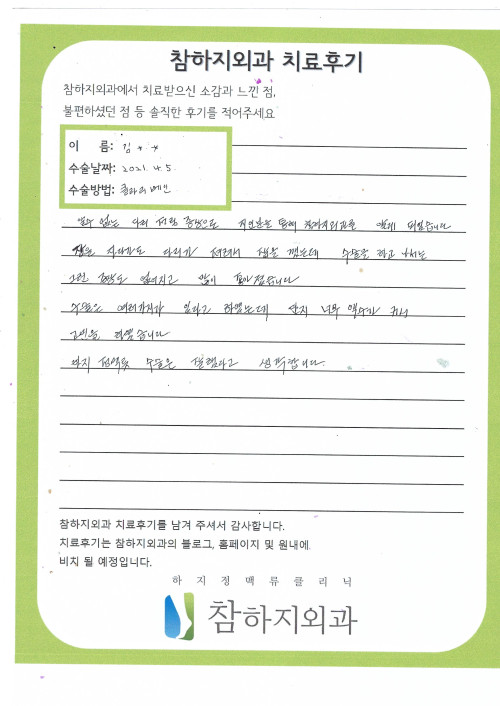 참하지외과 치료후기
참하지외과에서 치료받으신 소감과 느낀 점,
불편하셨던 점 등 솔직한 후기를 적어주세요
이 름: 김 * *
수술날짜: 2021. 4. 5.
수술방법: 클라리베인
알수 없는 다리 저림 증상으로 지인분을 통해 참하지외과를 알게 되었습니다
잠을 자다가도 다리가 저려서 잠을 깼는데 수술을 하고 나서는
그런 증상도 없어지고 많이 좋아졌습니다
수술은 여러가지가 있다고 하였는데 단지 너무 액수가 커서
고민을 하였습니다
하지만 수술은 잘했다고 생각합니다.
참하지외과 치료후기를 남겨 주셔서 감사합니다.
치료후기는 참하지외과의 블로그, 홈페이지 및 원내에
비치 될 예정입니다.
하지정맥류클리닉
참하지외과